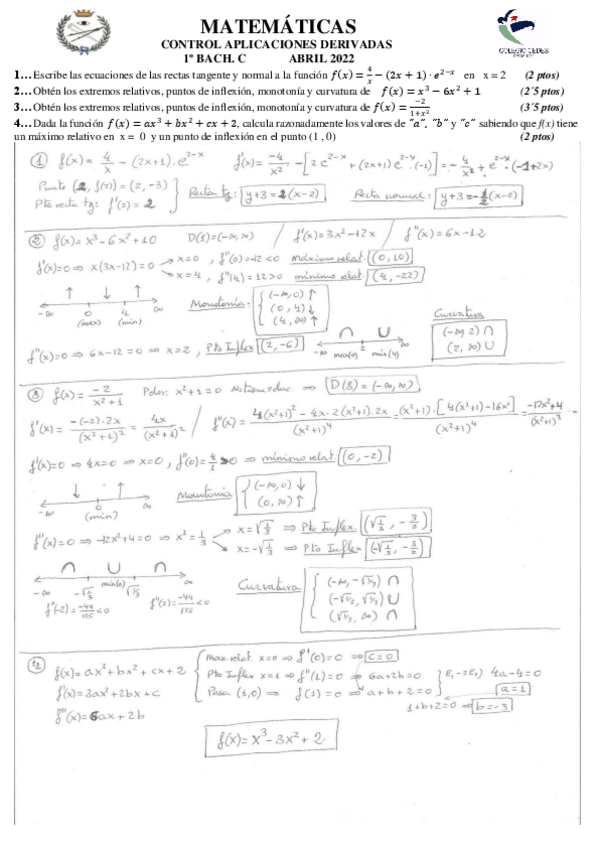 MATEMÁTICAS
CONTROL APLICACIONES DERIVADAS
1º BACH. C ABRIL 2022
COLEGIO CEDES
1… Escribe las ecuaciones de las rectas tangente y normal a la función f(x) = 4/x − (2x + 1) · e^(2−x) en x = 2 (2 ptos)
2… Obtén los extremos relativos, puntos de inflexión, monotonía y curvatura de f(x) = x³ − 6x² + 1 (2´5 ptos)
3… Obtén los extremos relativos, puntos de inflexión, monotonía y curvatura de f(x) = −2/(1+x²) (3´5 ptos)
4… Dada la función f(x) = ax³ + bx² + cx + 2, calcula razonadamente los valores de "a", "b" y "c" sabiendo que f(x) tiene
un máximo relativo en x = 0 y un punto de inflexión en el punto (1 , 0) (2 ptos)
① f(x) = 4/x − (2x+1)·e^(2−x) f'(x) = −4/x² − [2e^(2−x) + (2x+1)e^(2−x)·(−1)] = −4/x² + e^(2−x)·(−1+2x)
Punto (2, f(2)) = (2, −3)
Pte recta tg: f'(2) = 2 } Recta tg: y+3 = 2(x−2) Recta normal: y+3 = −1/2(x−2)
② f(x) = x³ − 6x² + 10 D(f) = (−∞, ∞) / f'(x) = 3x² − 12x / f''(x) = 6x − 12
f'(x) = 0 ⇒ x(3x−12) = 0 → x = 0, f''(0) = −12 < 0 máximo relat. (0, 10)
→ x = 4, f''(4) = 12 > 0 mínimo relat. (4, −22)
↑ ↓ ↑
−∞ 0 4 ∞
(max) (min)
Monotonía: { (−∞, 0) ↑
(0, 4) ↓
(4, ∞) ↑
Curvatura
(−∞, 2) ∩
(2, ∞) ∪
f''(x) = 0 ⇒ 6x − 12 = 0 ⇒ x = 2, Pto Inflex (2, −6)
∩ ∪
−∞ max(0) 2 min(4) ∞
③ f(x) = −2/(x²+1) Polos: x²+1 = 0 No tiene soluc. ⇒ D(f) = (−∞, ∞)
f'(x) = −(−2)·2x/(x²+1)² = 4x/(x²+1)² / f''(x) = 4(x²+1)² − 4x·2(x²+1)·2x/(x²+1)⁴ = (x²+1)·[4(x²+1) − 16x²]/(x²+1)⁴ = −12x²+4/(x²+1)³
f'(x) = 0 ⇒ 4x = 0 ⇒ x = 0, f''(0) = 4/1 > 0 ⇒ mínimo relat. (0, −2)
↓ ↑
−∞ 0 ∞
(min)
Monotonía { (−∞, 0) ↓
(0, ∞) ↑
f''(x) = 0 ⇒ −12x²+4 = 0 ⇒ x² = 1/3 → x = √(1/3) ⇒ Pto Inflex. (√(1/3), −3/2)
→ x = −√(1/3) ⇒ Pto Inflex (−√(1/3), −3/2)
∩ ∪ ∩
−∞ −√(1/3) min(0) √(1/3) ∞
f''(−2) = −44/125 < 0 f''(2) = −44/125 < 0
Curvatura { (−∞, −√(1/3)) ∩
(−√(1/3), √(1/3)) ∪
(√(1/3), ∞) ∩
④ f(x) = ax³ + bx² + cx + 2
f'(x) = 3ax² + 2bx + c
f''(x) = 6ax + 2b
Max. relat. x = 0 ⇒ f'(0) = 0 ⇒ c = 0
Pto Inflex x = 1 ⇒ f''(1) = 0 ⇒ 6a + 2b = 0
Pasa (1, 0) ⇒ f(1) = 0 ⇒ a + b + 2 = 0
E₁ − 2E₂) 4a − 4 = 0
a = 1
1 + b + 2 = 0 ⇒ b = −3
f(x) = x³ − 3x² + 2